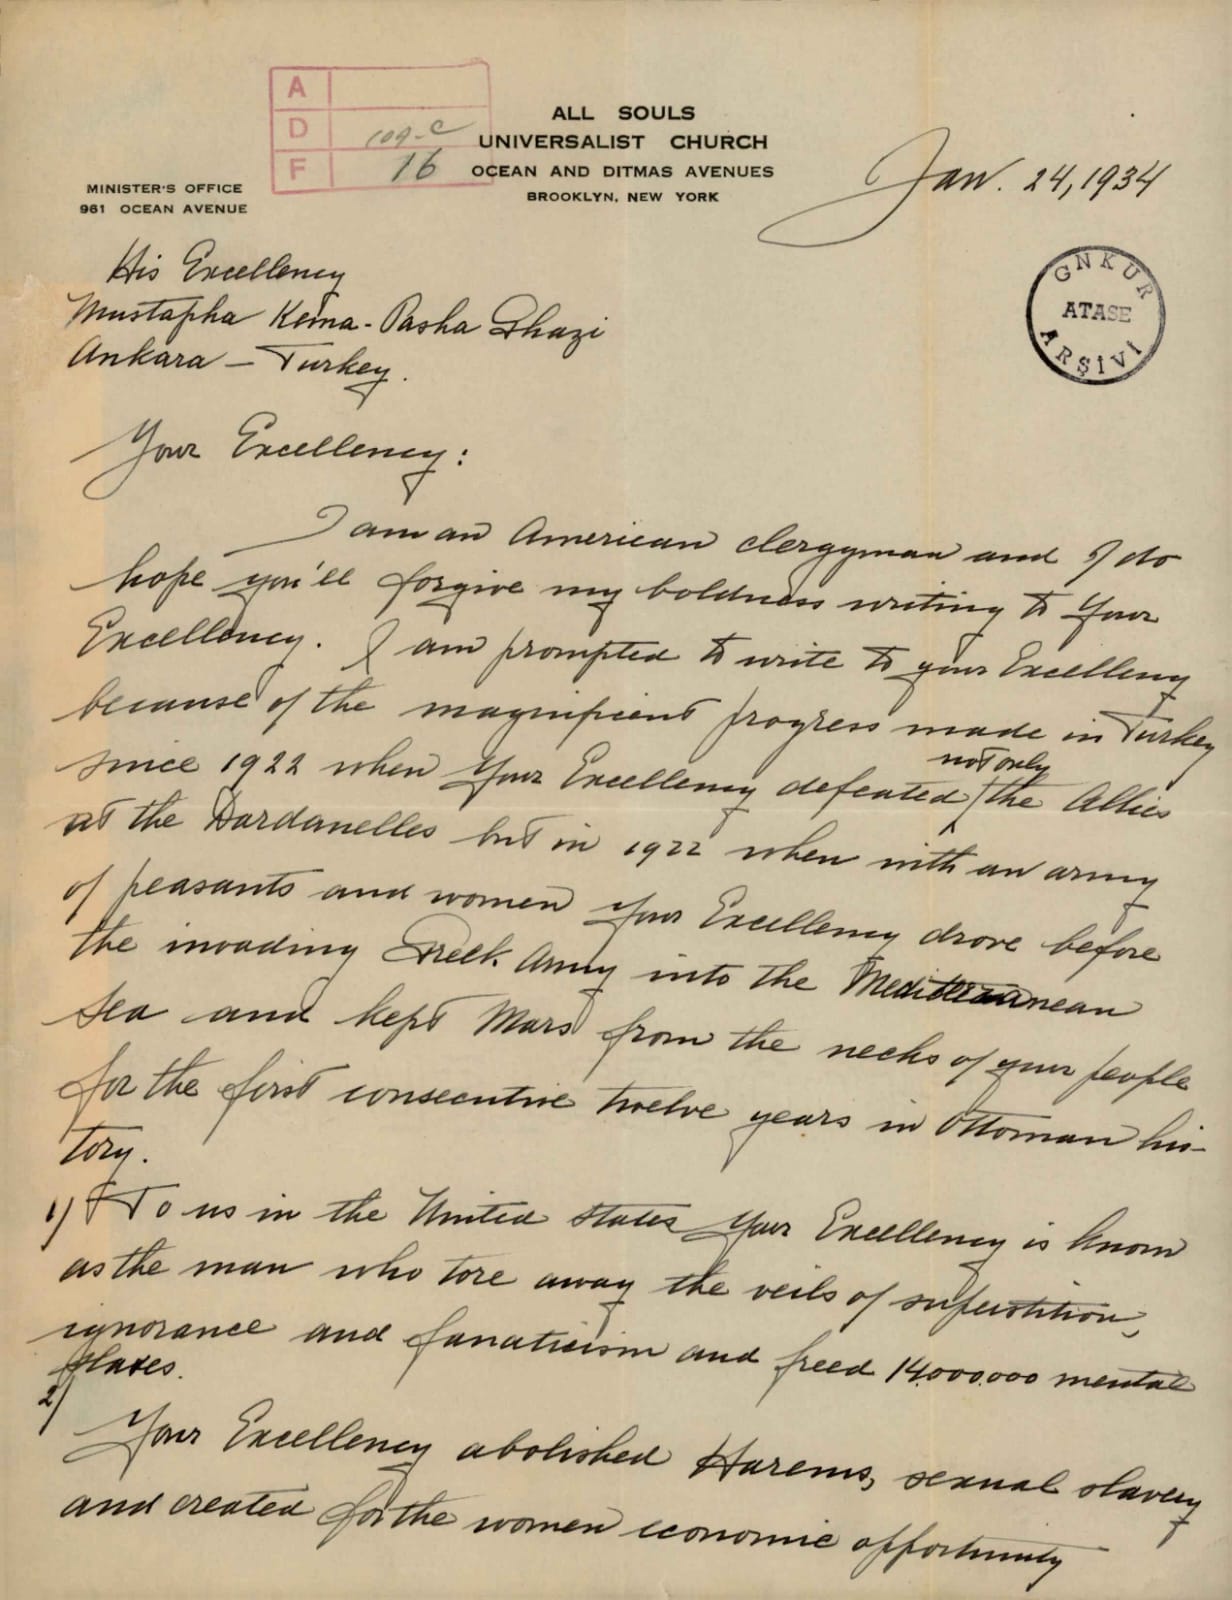 A
D 109-C
F 16
ALL SOULS
UNIVERSALIST CHURCH
OCEAN AND DITMAS AVENUES
BROOKLYN, NEW YORK
MINISTER'S OFFICE
961 OCEAN AVENUE
Jan. 24, 1934
GNKUR
ATASE
ARŞİVİ
His Excellency
Mustapha Kema-Pasha Ghazi
Ankara – Turkey.
Your Excellency:
I am an American clergyman and I do
hope you'll forgive my boldness writing to Your
Excellency. I am prompted to write to your Excellency
because of the magnificent progress made in Turkey
since 1922 when Your Excellency defeated not only the Allies
at the Dardanelles but in 1922 when with an army
of peasants and women your Excellency drove before
the invading Greek Army into the Mediterranean
Sea and kept Mars from the necks of your people
for the first consecutive twelve years in Ottoman his-
tory.
1) To us in the United States Your Excellency is known
as the man who tore away the veils of superstition,
ignorance and fanaticism and freed 14.000.000 mental
slaves.
2)
Your Excellency abolished Harems, sexual slavery
and created for the women economic opportunity